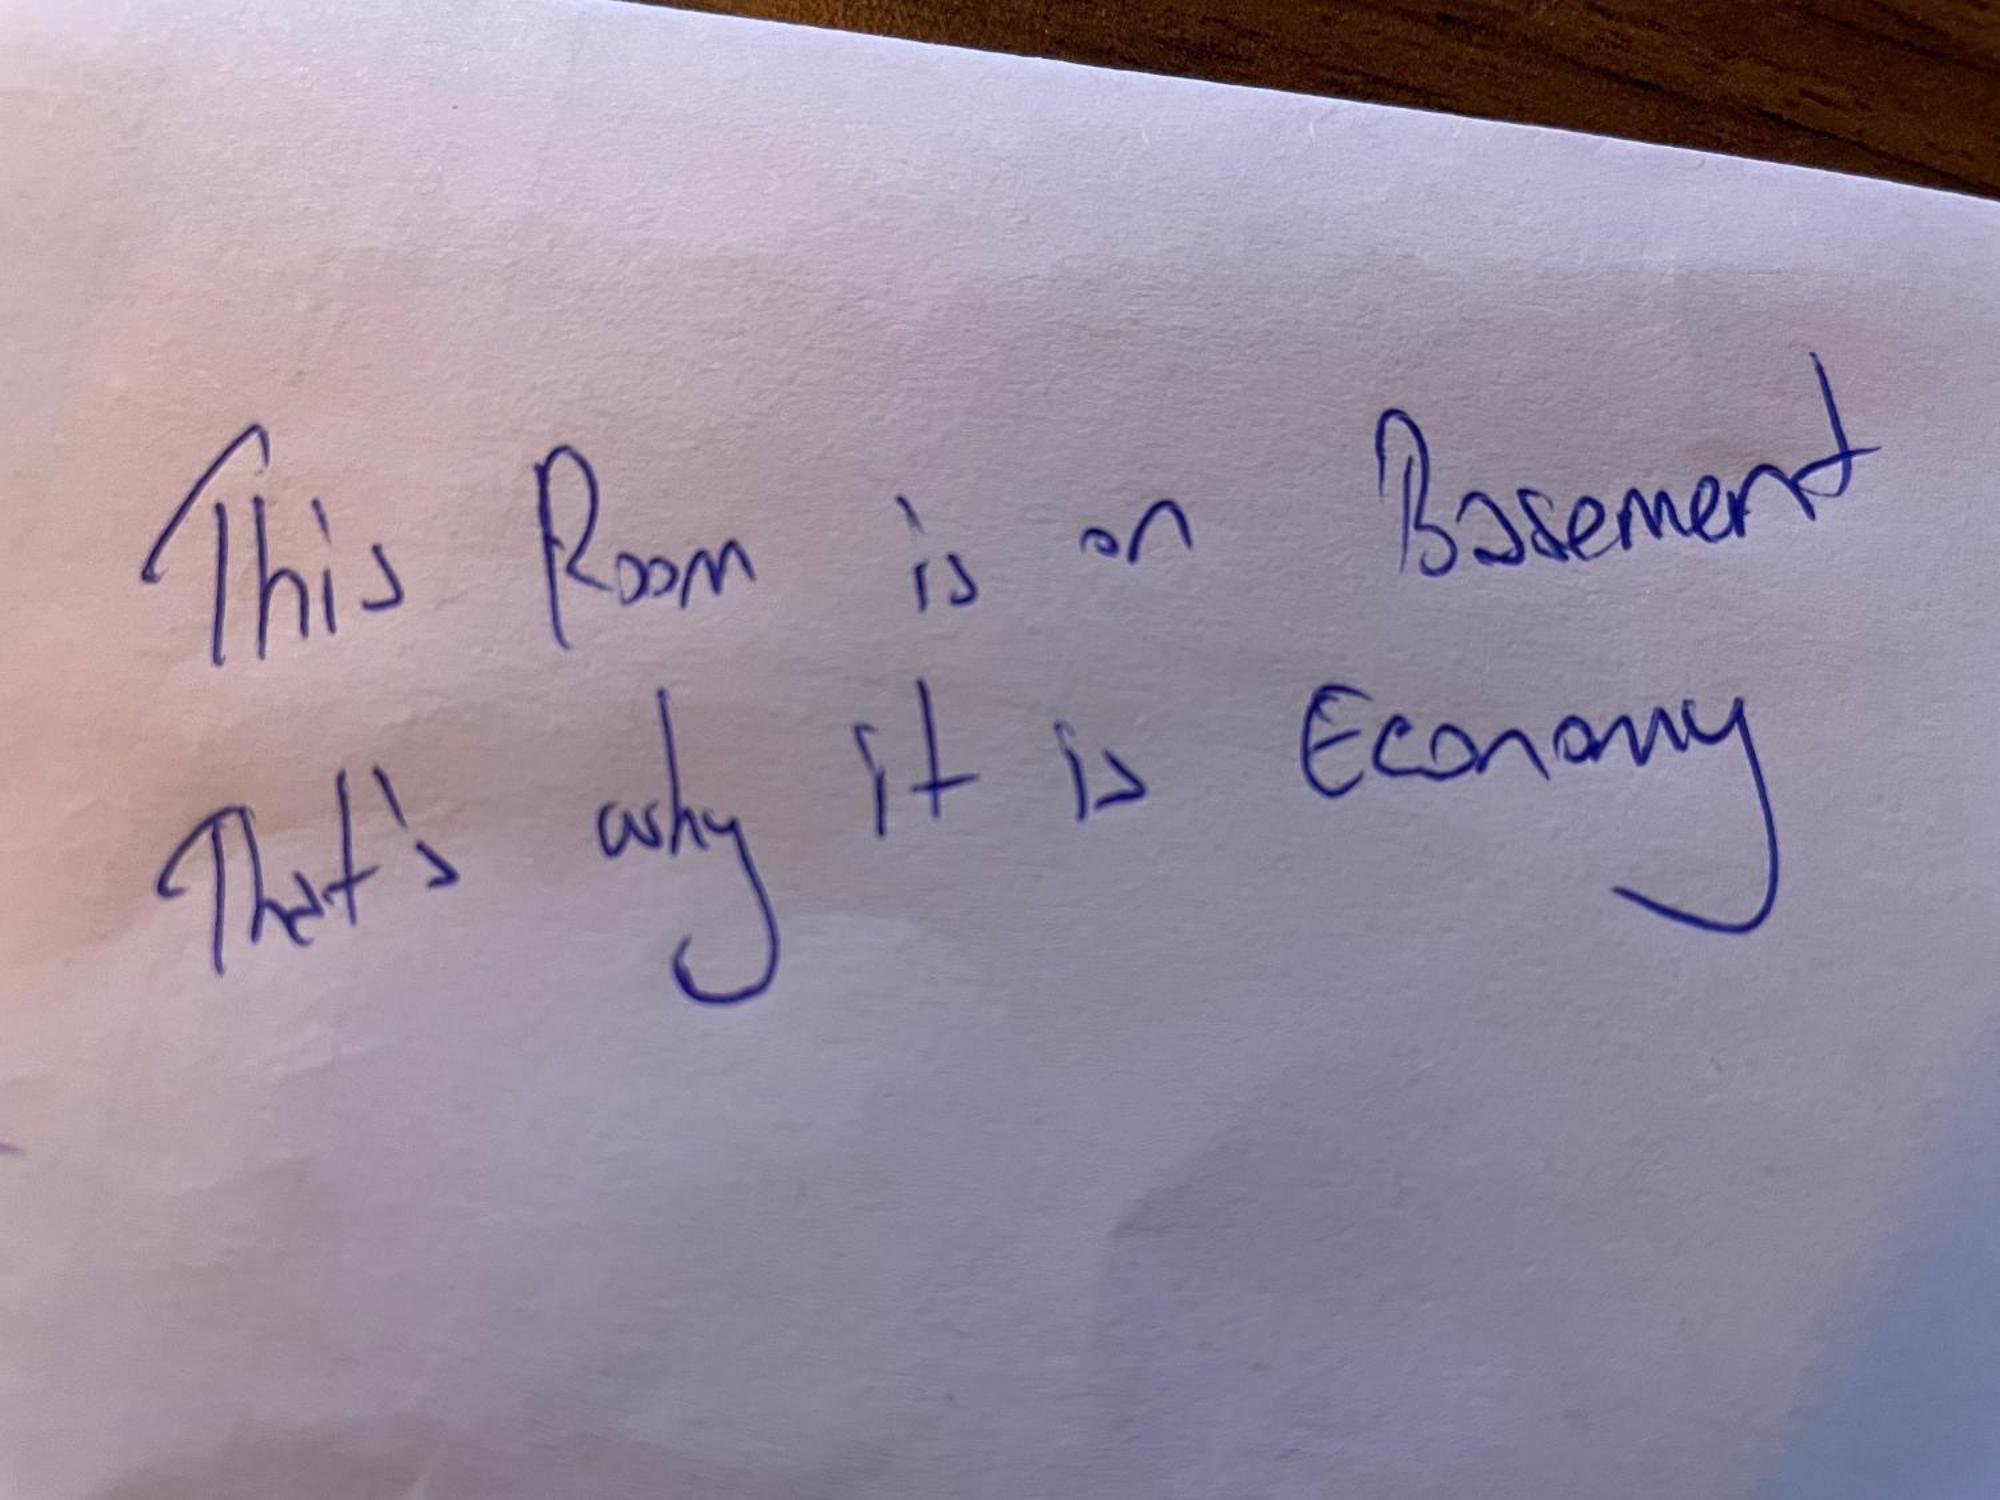 This Room is on Basement
That's why it is Economy